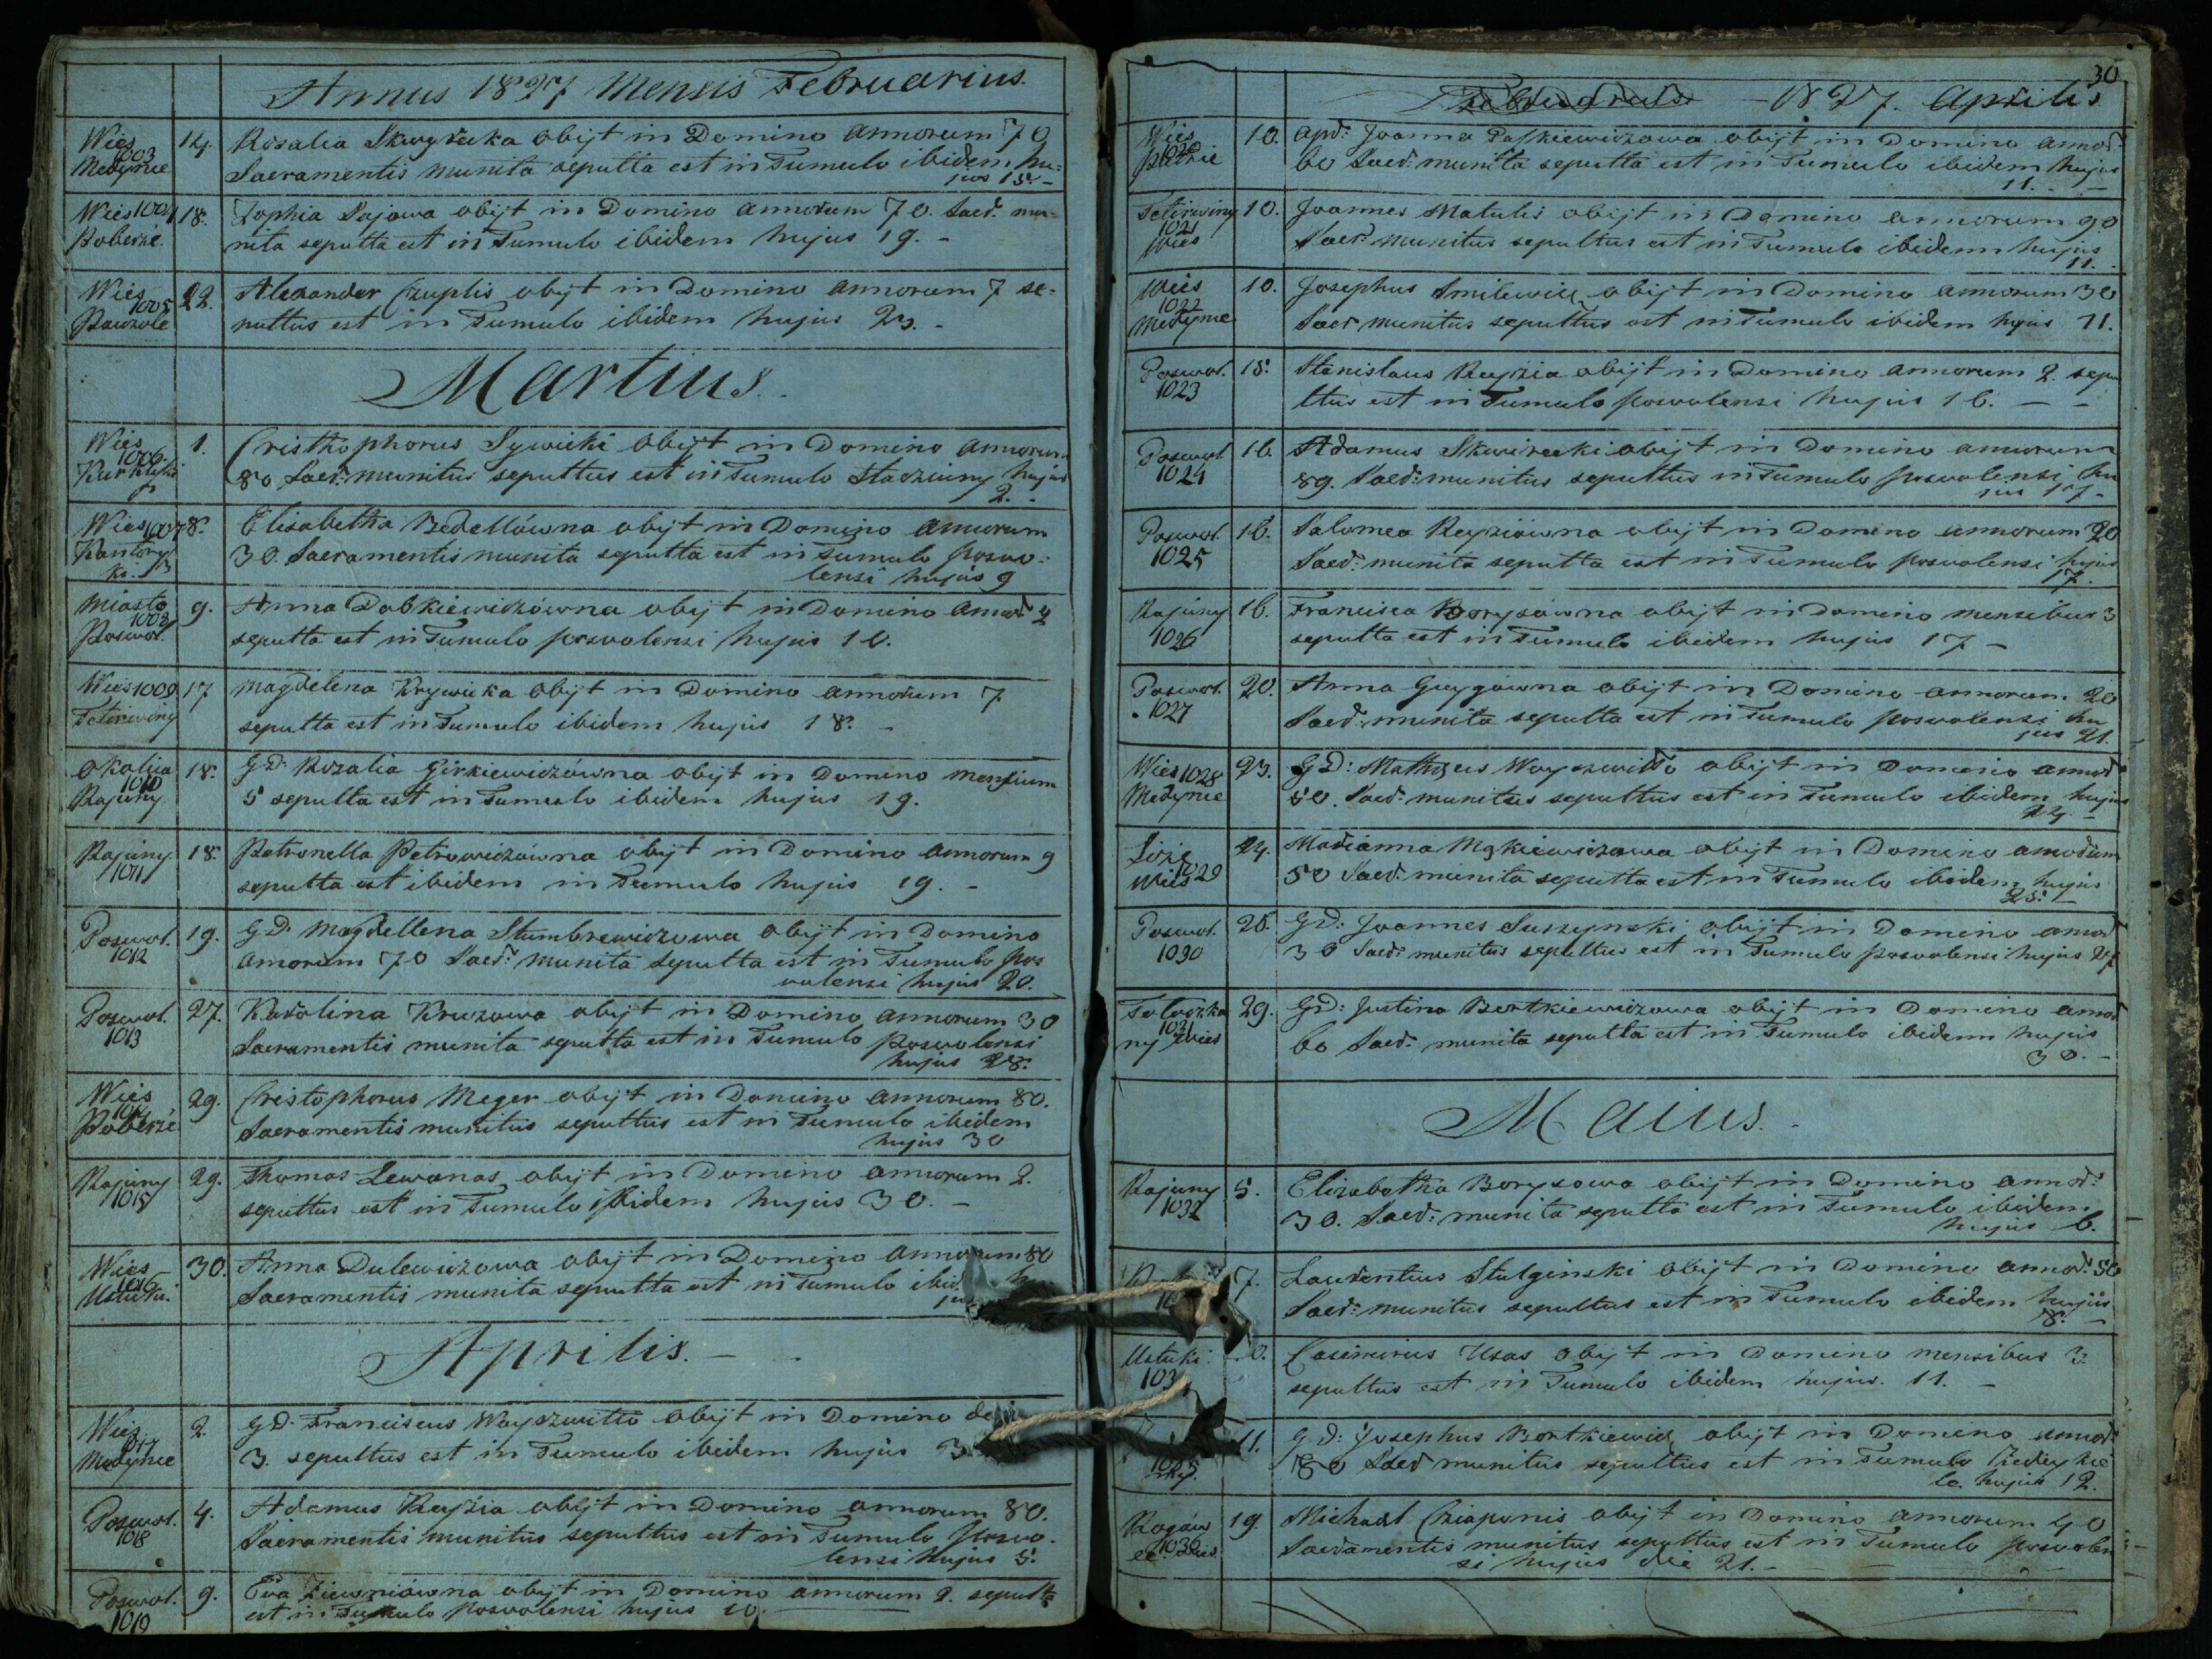 Annus 1827 Mensis Februarius.
Wieś
1003
Medynie
14.
Rosalia Skuryńska obijt in Domino annorum 70
Sacramentis munita sepulta est in Tumulo ibidem hu=
jus 15. –
Wieś 1004
Poberże.
18.
Zophia Sajowa obijt in Domino annorum 70. Sacr. mu-
nita sepulta est in Tumulo ibidem hujus 19. –
Wieś
1005
22.
Alexander Czuplis obijt in Domino annorum 7 se-
pultus est in Tumulo ibidem hujus 23. –
Martius.
Wieś
1006
1.
Cristhophorus Sywicki obijt in Domino annorum
80 Sacr: munitus sepultus est in Tumulo Stacziuny hujus
2. –
Wieś 1007
8.
Elisabetha Bedellówna obijt in Domino annorum
30. Sacramentis munita sepulta est in Tumulo poswo-
lensi hujus 9
Miasto
1003
Poswol.
9.
Anna Dobkiewiczówna obijt in Domino annor 2
sepulta est in Tumulo posvolensi hujus 10.
Wieś 1009
Tetirwiny
17
Magdelena Krywicka obijt in Domino annorum 7.
sepulta est in Tumulo ibidem hujus 18. –
Okolica
1010
Rajuny
18.
GD. Rozalia Girkiewiczówna obijt in Domino mensium
5 sepulta est in Tumulo ibidem hujus 19.
Rajuny
1011
18.
Petronella Petrowiczówna obijt in Domino annorum 9
sepulta est ibidem in Tumulo hujus 19. –
Poswol.
1012
19.
GD. Magdellena Stumbrewiczowa obijt in Domino
annorum 70 Sacr: munita sepulta est in Tumulo pos
volensi hujus 20.
Poswol.
1013
27.
Karolina Kruzowa obijt in Domino annorum 30
Sacramentis munita sepulta est in Tumulo poswolensi
hujus 28.
Wieś
1014
Poberże
29.
Cristophorus Meger obijt in Domino annorum 80.
Sacramentis munitus sepultus est in Tumulo ibidem
hujus 30
Rajuny
1015
29.
Thomas Lewanas obijt in Domino annorum 2.
sepultus est in Tumulo ibidem hujus 30. –
Wieś
1016
Ustuki.
30.
Anna Dulewiczowa obijt in Domino annorum 80
Sacramentis munita sepulta est in Tumulo
Aprilis. –
Wieś
1017
Medynie
2.
GD. Franciscus Woyszwiłło obijt in Domino
3. sepultus est in Tumulo ibidem hujus 3.
Poswol.
1018
4.
Adamus Reyzia obijt in Domino annorum 80.
Sacramentis munitus sepultus est in Tumulo poswo-
lensi hujus 5.
Poswol.
1019
9.
Eva Ziewniówna obijt in Domino annorum 2. sepulta
est in Tumulo posvolensi hujus 10.
30
1827. Aprilis
Wieś
1020
10.
Apd: Joanna Paszkiewiczowa obijt in Domino annor.
60 Sacr: munita sepulta est in Tumulo ibidem hujus
11. –
Tetirwiny
1021
Wieś
10.
Joannes Matulis obijt in Domino annorum 90
Sacr: munitus sepultus est in Tumulo ibidem hujus
11.
Wieś
1022
Medynie
10.
Josephus Smilewicz obijt in Domino annorum 30
Sacr munitus sepultus est in Tumulo ibidem hujus 11.
Poswol.
1023
15.
Stanislaus Reyzia obijt in Domino annorum 2. sepu
ltus est in Tumulo poswolensi hujus 16. – –
Poswol
1024
16.
Adamus Skwirecki obijt in Domino annorum
89. Sacr: munitus sepultus in Tumulo poswolensi hu
jus 17 –
Poswol.
1025
16.
Salomea Reyziówna obijt in Domino annorum 20
Sacr: munita sepulta est in Tumulo poswolensi hujus
17.
Rajuny
1026
16.
Francisca Borysówna obijt in Domino mensibus 3
sepulta est in Tumulo ibidem hujus 17 –
Poswol.
1027
20.
Anna Guygówna obijt in Domino annorum 20
Sacr: munita sepulta est in Tumulo poswolensi hu
jus 21.
Wieś 1028
Medynie
23.
GD: Matheus Woyszwiłło obijt in Domino annor
50. Sacr. munitus sepultus est in Tumulo ibidem hujus
24. –
1029
Wieś
24.
Marianna Mąkiewiczowa obijt in Domino annorum
50 Sacr: munita sepulta est in Tumulo ibidem hujus
25. –
Poswol.
1030
26.
GD: Joannes Suszynski obijt in Domino annor
30 Sacr: munitus sepultus est in Tumulo poswolensi hujus 27
1031
ny Wieś
29.
GD: Justina Bortkiewiczowa obijt in Domino annor
60 Sacr: munita sepulta est in Tumulo ibidem hujus
30. –
Maius.
Rajuny
1032
5.
Elizabetha Borysowa obijt in Domino annor:
30. Sacr: munita sepulta est in Tumulo ibidem
hujus 6.
7.
Laurentius Stulginski obijt in Domino annor. 50
Sacr: munitus sepultus est in Tumulo ibidem hujus
8. –
Ustuki.
Casimirus Usas obijt in Domino mensibus 3.
sepultus est in Tumulo ibidem hujus. 11. –
1035
11.
GD: Josephus Bortkiewicz obijt in Domino annor:
80 Sacr munitus sepultus est in Tumulo
hujus 12.
1036
19.
Michael Cziaponis obijt in Domino annorum 40
Sacramentis munitus sepultus est in Tumulo posvolen
si hujus die 21. –